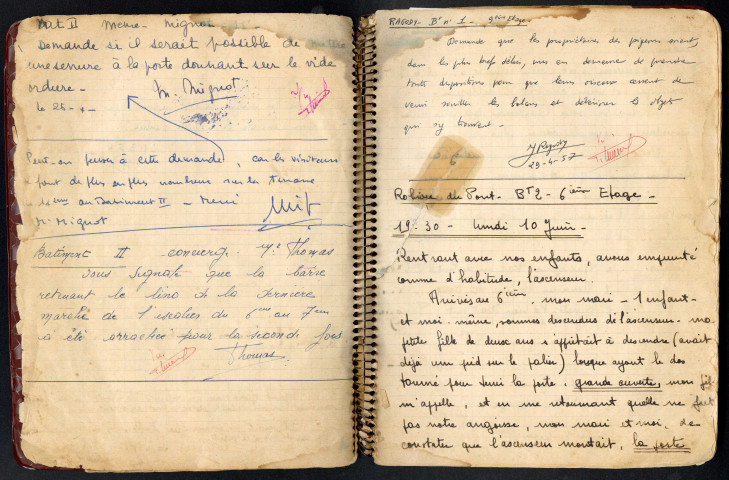 Bat II
Demande si il serait possible de mettre
une serrure à la porte donnant sur le vide
ordure -
M. Mignot
le 26 -
Peut-on penser à cette demande, car les visiteurs
font de plus en plus nombreux sur la terrasse
au Batiment II - Merci
M. Mignot
Batiment II concierg. Thomas
vous signale que la barre
retenant le lino de la derniere
marche de l'escalier du 6eme au 7eme
a été arrachée pour la seconde fois
Thomas.
RAGODY - Bt n° 1 - 9ème Etage -
Demande que les propriétaires des pigeons
dans les plus brefs délais, de prendre
toutes dispositions pour que leurs oiseaux cessent de
venir souiller les balcons et détériorer les objets
qui s'y trouvent -
29-4-57
du Pont - BT 2 - 6ième Etage -
19-30 - lundi 10 Juin -
Rentrant avec nos enfants, avons emprunté
comme d'habitude, l'ascenseur.
Arrivés au 6ième, mon mari - 1 enfant -
et moi-même, sommes descendus de l'ascenseur - ma
petite fille de deux ans s'apprêtait à descendre (avait
déjà un pied sur le palier) lorsque ayant le dos
tourné pour tenir la porte, grande ouverte, mon fils
m'appelle, et en me retournant quelle ne fut
pas notre angoisse, mon mari et moi, de
constater que l'ascenseur montait, la porte